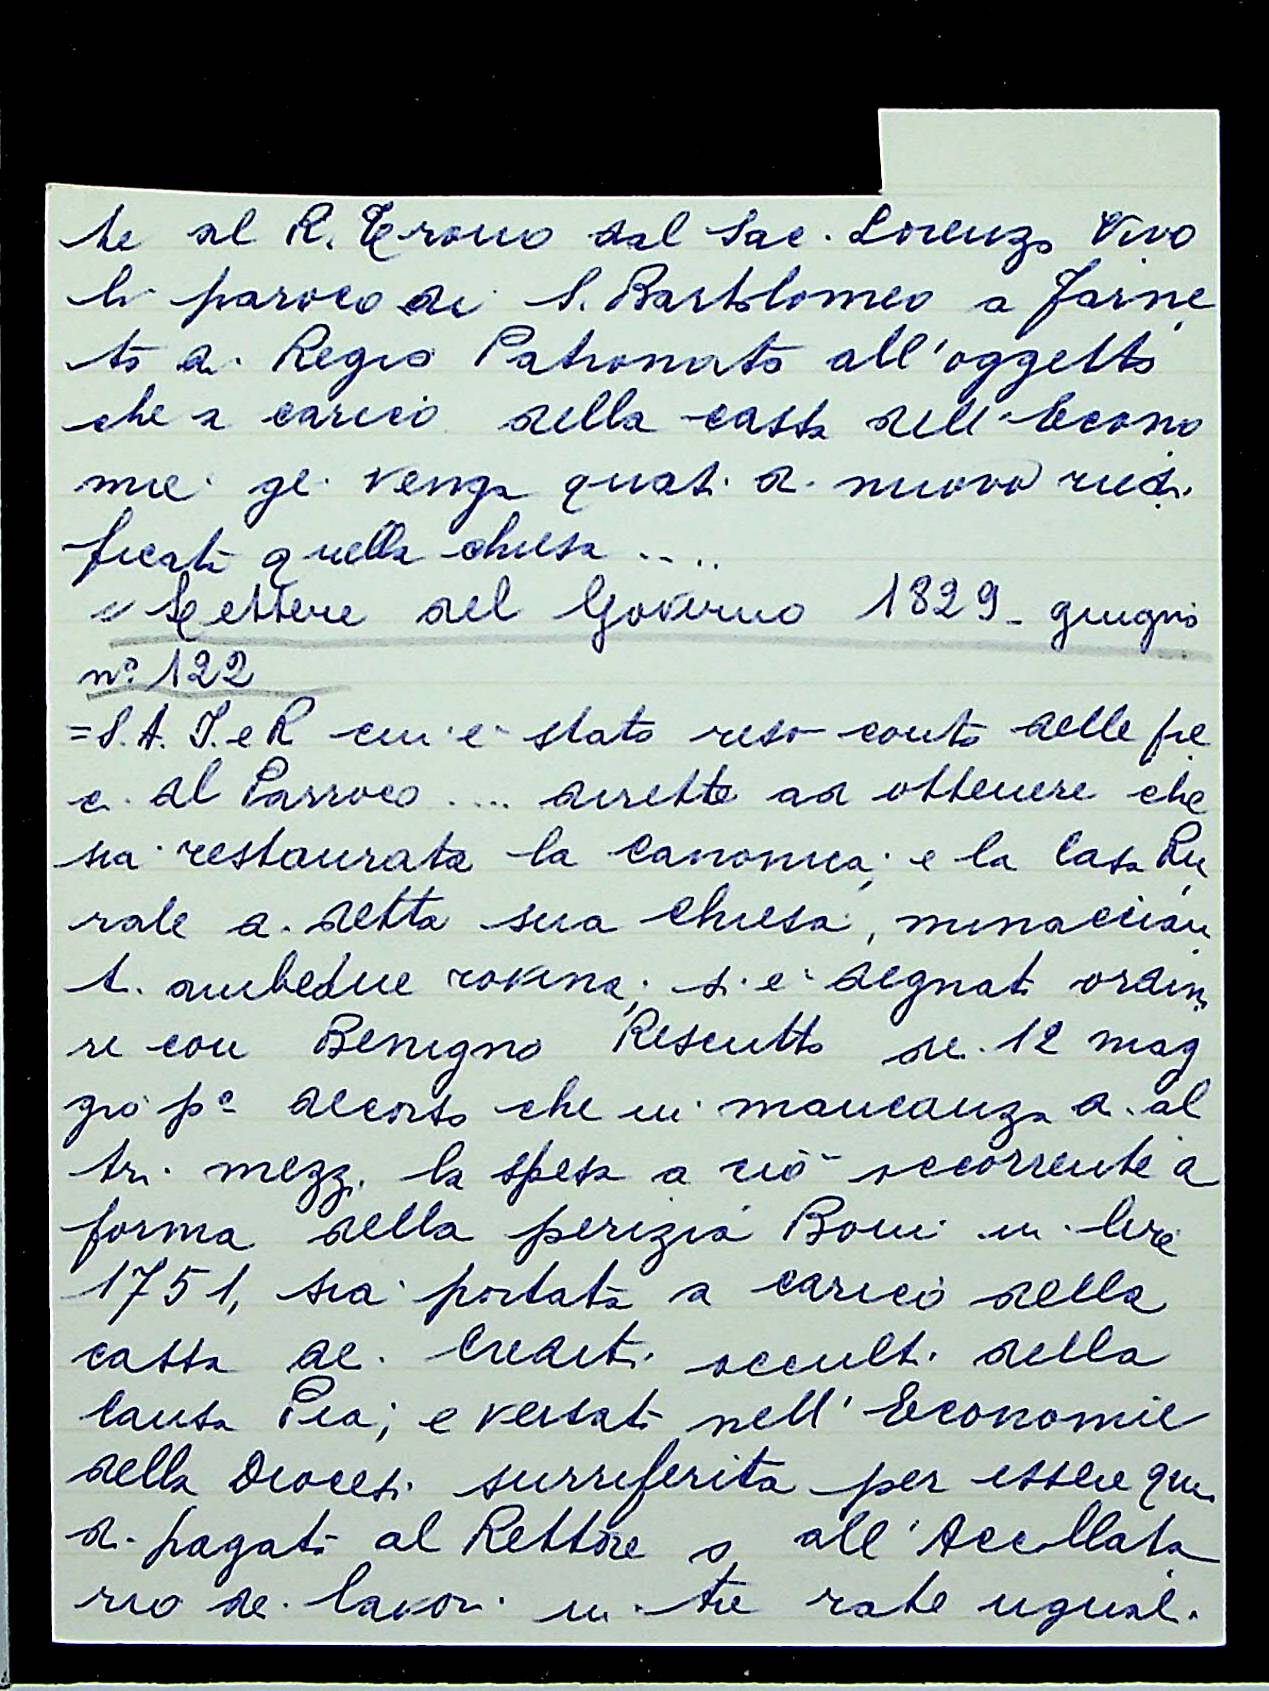 te al R. Trono dal Sac. Lorenzo Vivo
li paroco di S. Bartolomeo a Farne
to di Regio Patronato all'oggetto
che a carico della cassa dell'Econo
mie gli venga quasi di nuovo riedi
ficata quella chiesa ....
Lettere del Governo 1829 - giugno
n° 122
= S. A. I. e R cui è stato reso conto delle pre
ci del Parroco .... dirette ad ottenere che
sia restaurata la canonica; e la Casa Ru
rale di detta sua Chiesa, minaccian
ti ambedue rovina; si è degnato ordina
re con Benigno Rescritto di 12 mag
gio p° decorso che in mancanza di al
tri mezzi la spesa a ciò occorrente a
forma della perizia Boni in lire
1751, sia portata a carico della
cassa dei Crediti occulti della
Causa Pia; e versata nell'Economie
della Diocesi surriferita per essere quin
di pagato al Rettore o all'Accollata
rio dei lavori in tre rate uguali